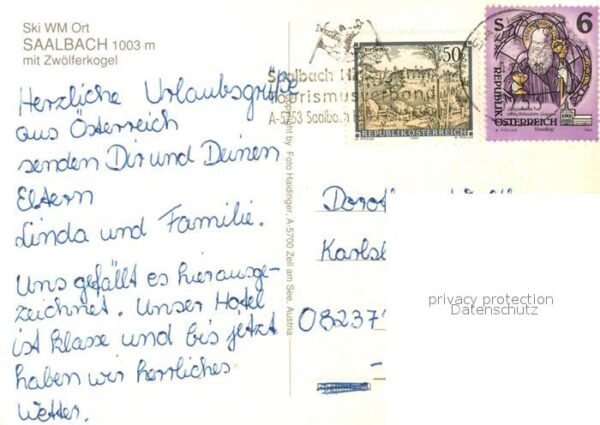 Ski WM Ort
SAALBACH 1003 m
mit Zwölferkogel
Herzliche Urlaubsgrüße
aus Österreich
senden Dir und Deinen
Eltern
Linda und Familie.
Uns gefällt es hier ausge-
zeichnet. Unser Hotel
ist klasse und bis jetzt
haben wir herrliches
Wetter.
Copyright by Foto Haidinger, A-5700 Zell am See, Austria
Saalbach
Tourismusverband
A-5753 Saalbach
50
REPUBLIK ÖSTERREICH
S
6
REPUBLIK
ÖSTERREICH
Karls
082371
privacy protection
Datenschutz